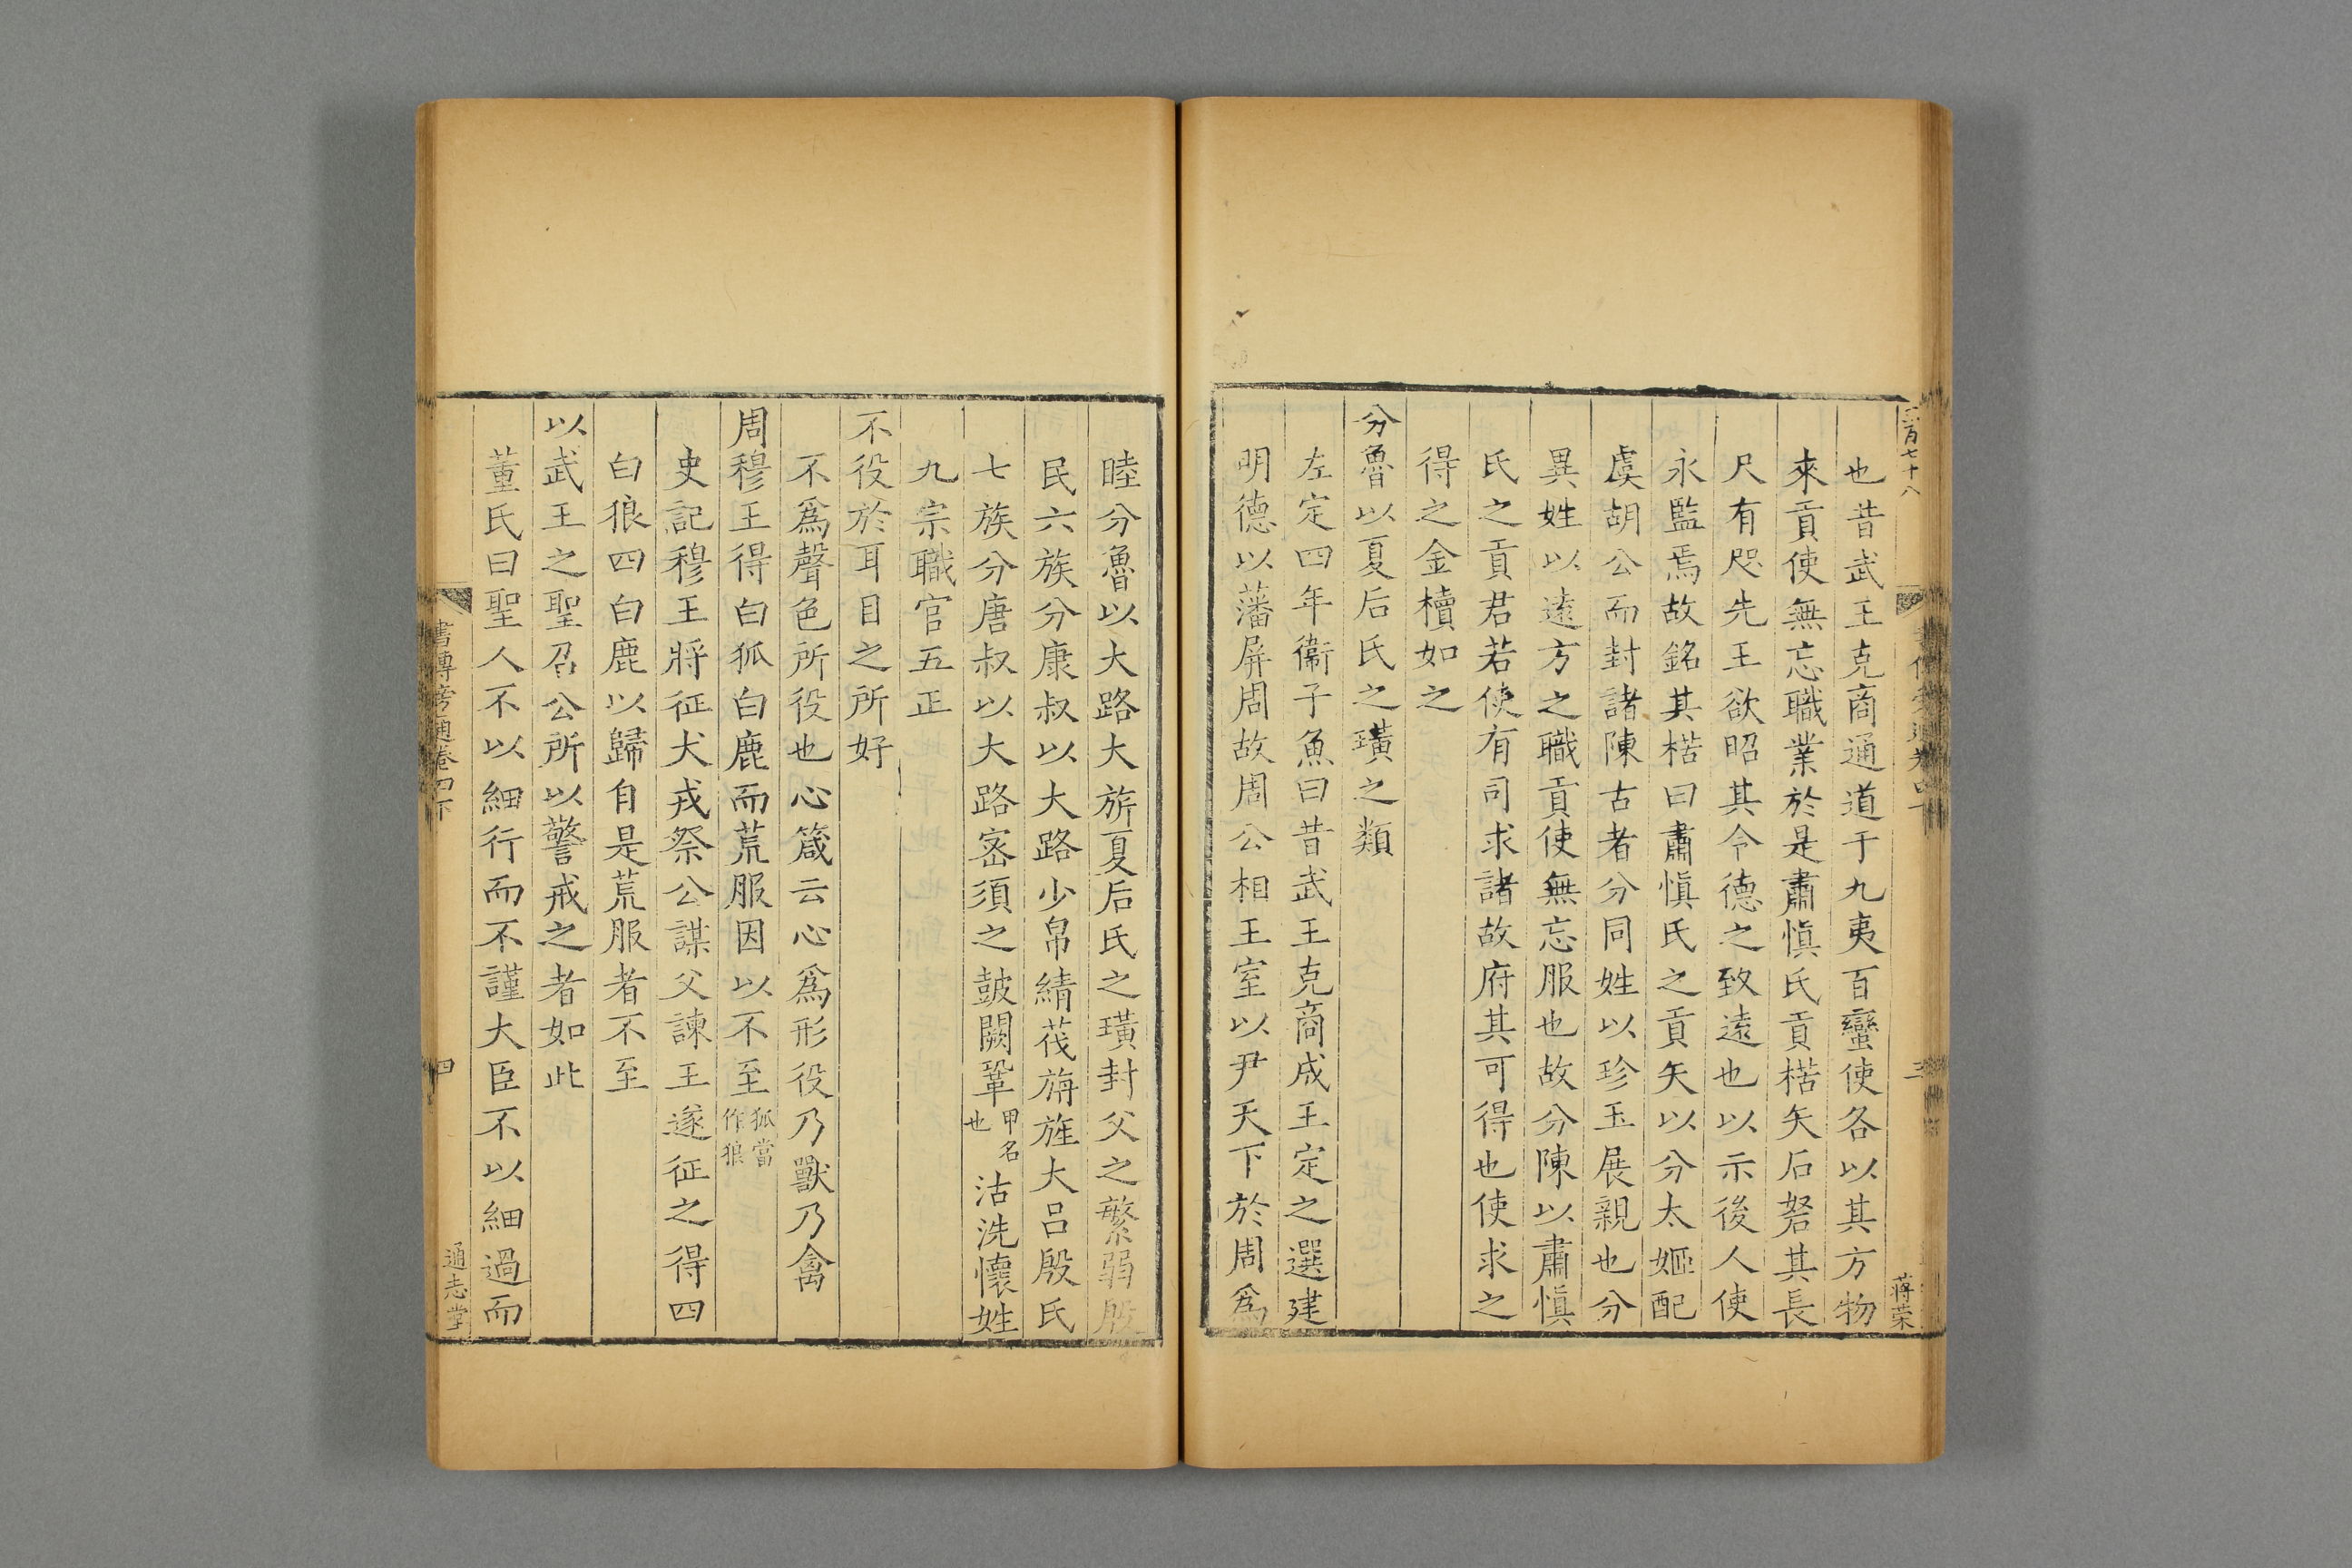 也昔武王克商通道于九夷百蠻使各以其方物
來貢使無忘職業於是肅愼氏貢楛矢石砮其長
尺有咫先王欲昭其令德之致遠也以示後人使
永監焉故銘其楛曰肅愼氏之貢矢以分太姬配
虞胡公而封諸陳古者分同姓以珍玉展親也分
異姓以遠方之職貢使無忘服也故分陳以肅愼
氏之貢君若使有司求諸故府其可得也使求之
得之金櫝如之
分魯以夏后氏之璜之類
左定四年衞子魚曰昔武王克商成王定之選建
明德以藩屏周故周公相王室以尹天下於周爲
睦分魯以大路大旂夏后氏之璜封父之繁弱殷
民六族分康叔以大路少帛綪茷旃旌大呂殷氏
七族分唐叔以大路密須之鼓闕鞏甲名也沽洗懷姓
九宗職官五正
不役於耳目之所好
不爲聲色所役也心箴云心爲形役乃獸乃禽
周穆王得白狐白鹿而荒服因以不至狐當作狼
史記穆王將征犬戎祭公謀父諫王遂征之得四
白狼四白鹿以歸自是荒服者不至
以武王之聖召公所以警戒之者如此
董氏曰聖人不以細行而不謹大臣不以細過而
書傳旁通卷四下
四
通志堂
三
蔣荣